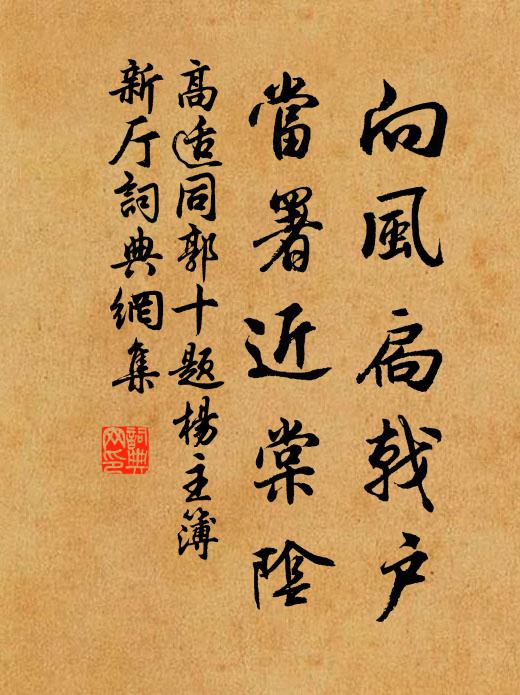 向風扃戟户
當署近棠陰
高适同郭十題楊主簿
新厅詞典網集
詞典网印